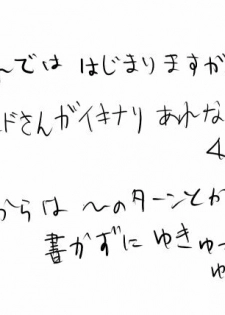 んでは はじまりますが
ドさんがイキナリ あれな
からは 〜のターンとか
書かずに ゆきゅっ
ゆ